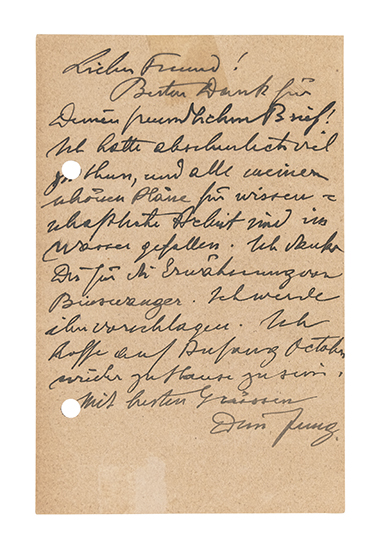 Lieber Freund!
Besten Dank für
Deinen freundlichen Brief!
Ich hatte abscheulich viel
zu thun, und alle meine
schönen Pläne für wissen=
schaftliche Arbeit sind ins
Wasser gefallen. Ich danke
Dir für die Erwähnung von
Binswanger. Ich werde
ihn vorschlagen. Ich
hoffe auf Anfang October
wieder zu Hause zu sein.
Mit besten Grüssen
Dein Jung.